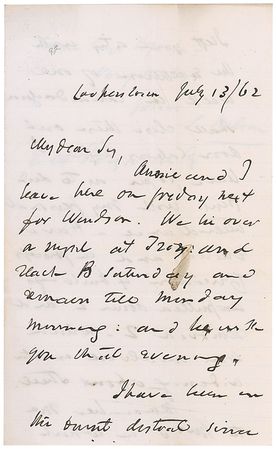 Cooperstown July 13/62
My dear Sir,
Annie and I
leave here on friday next
for Windson. We lie over
a night at Troy: and
reach B Saturday and
remain till monday
morning: and be with
you that evening.
I have been in
the burnt district since